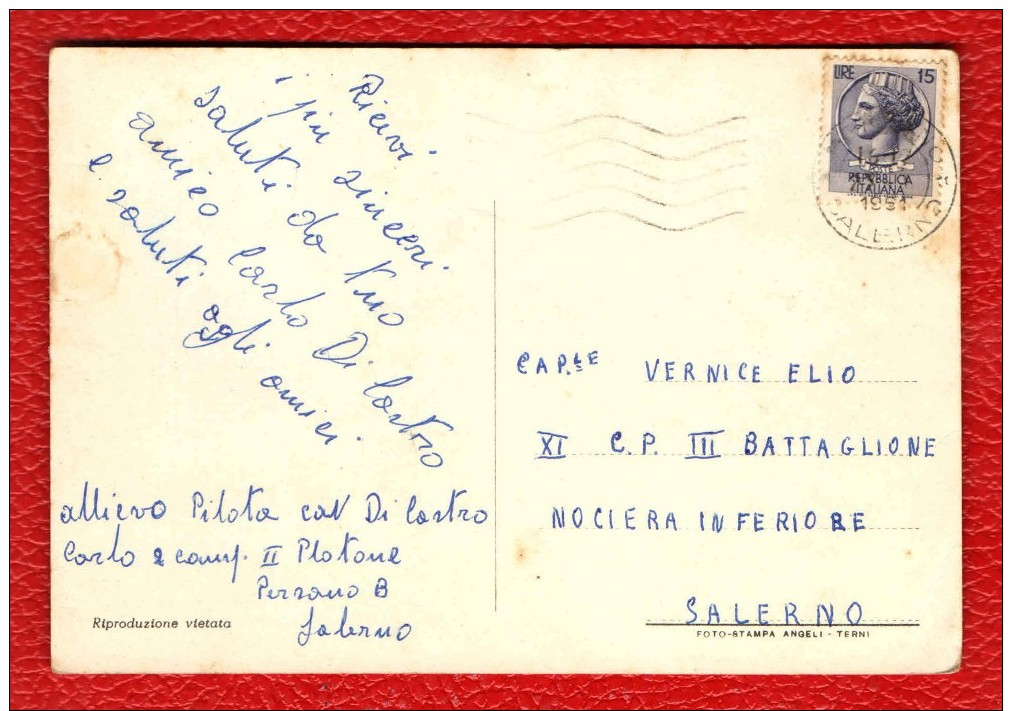 Ricevi
i più sinceri
saluti da tuo
amico Carlo Di Castro
e saluti agli amici.
allievo Pilota car Di Castro
Carlo 2 comp. II Plotone
Persano B
Salerno
Riproduzione vietata
LIRE 15
POSTE
REPVBBLICA
ITALIANA
1951
SALERNO
CAP.LE VERNICE ELIO
XI C.P. III BATTAGLIONE
NOCIERA INFERIORE
SALERNO
FOTO-STAMPA ANGELI - TERNI